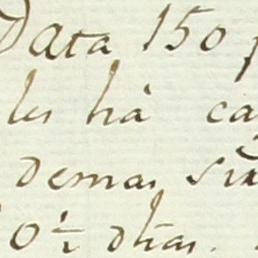 Data 150
les hà ca
demas
0½ dhas.